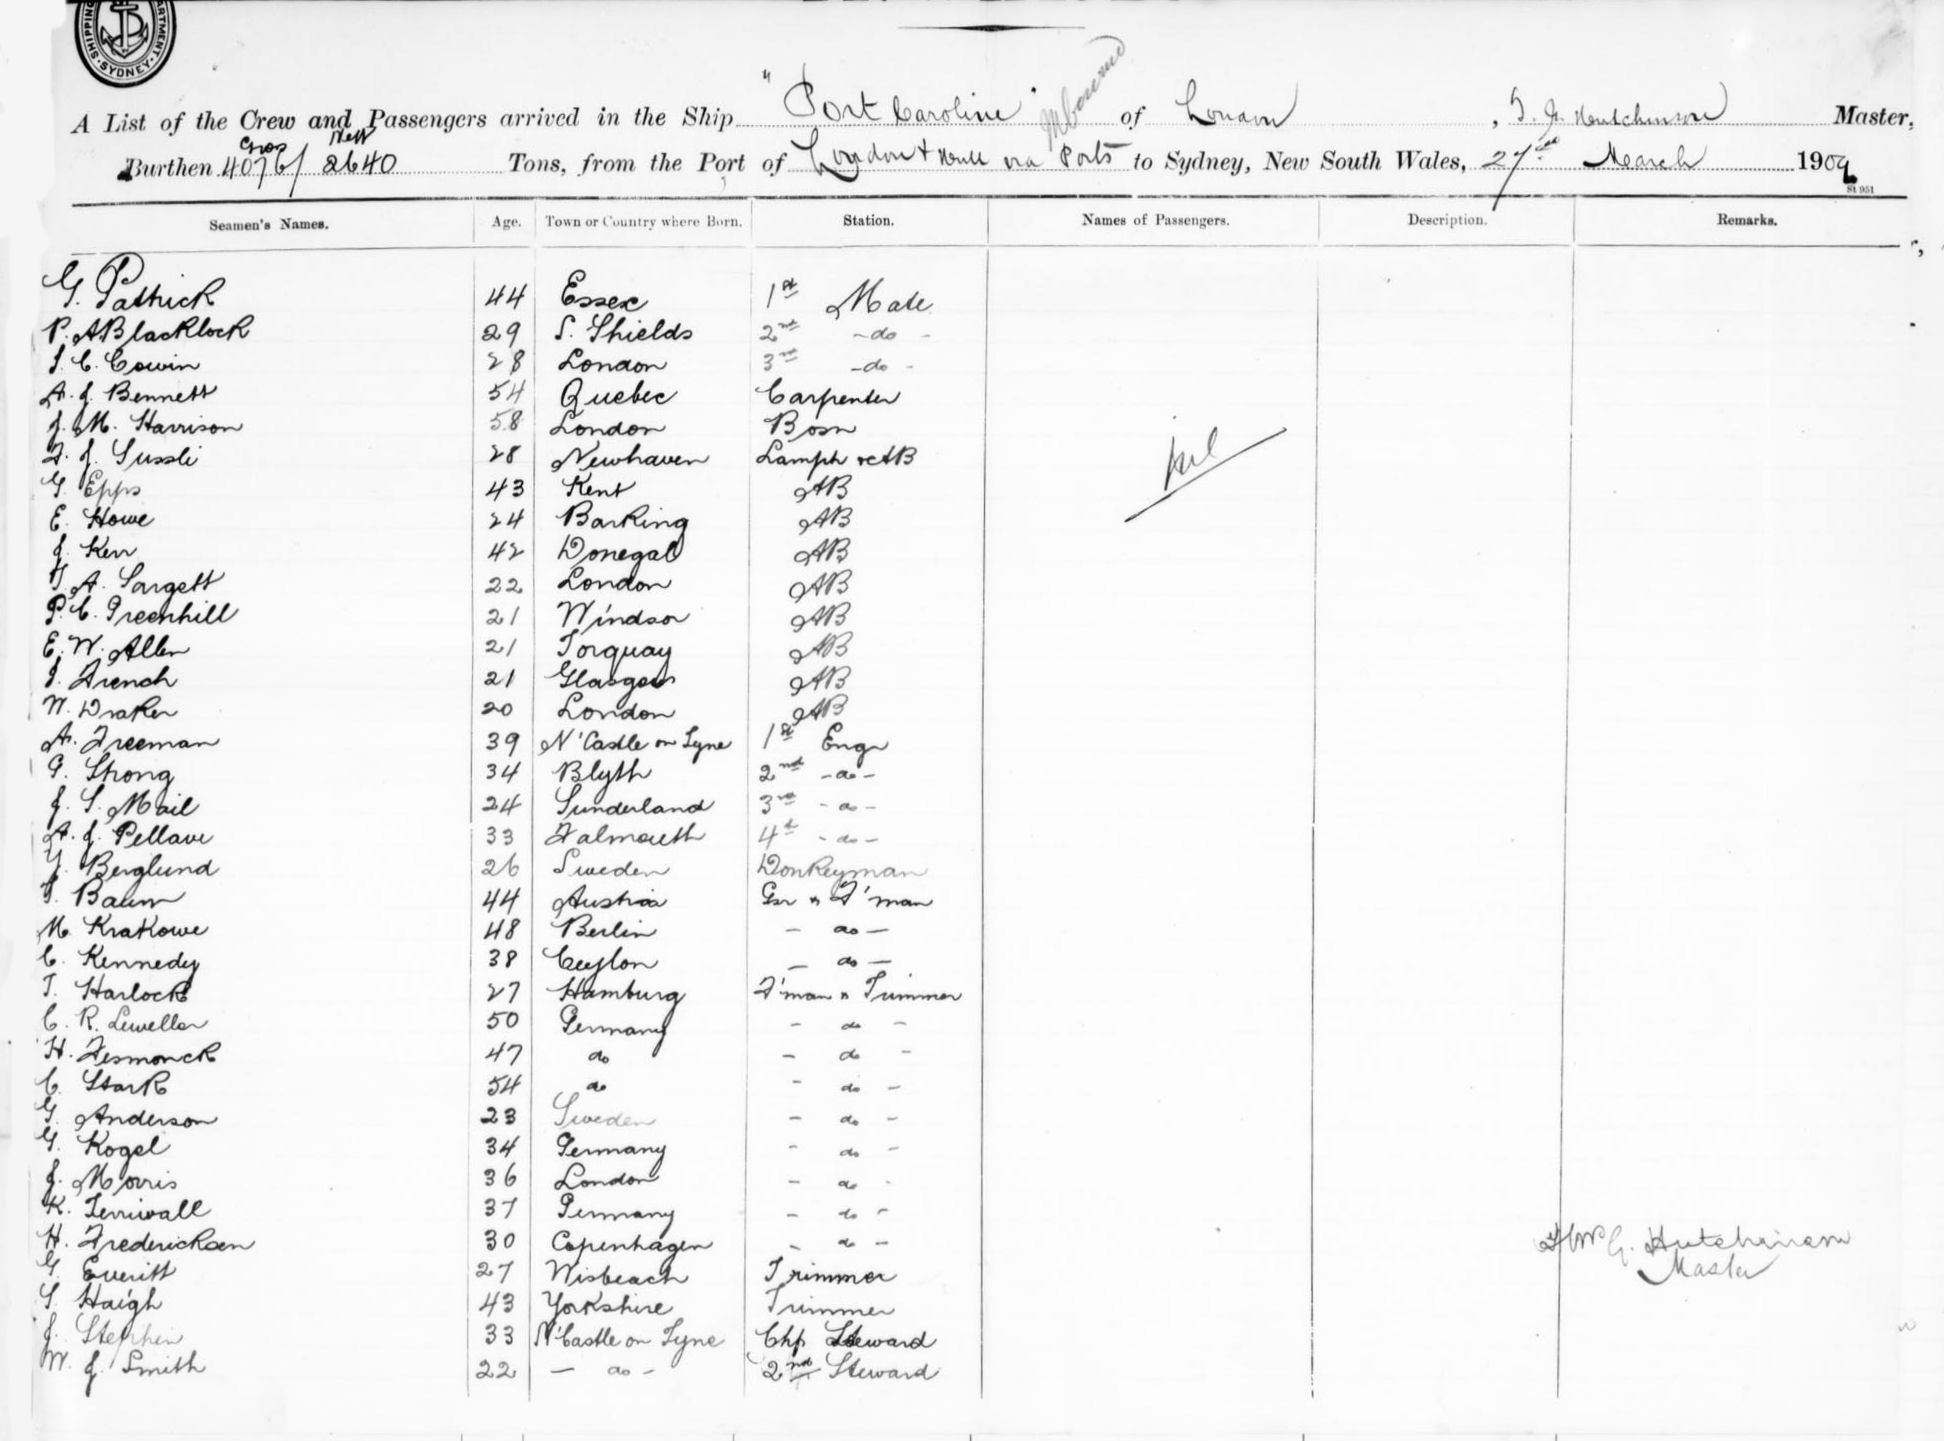 SHIPPING DEPARTMENT · SYDNEY ·
A List of the Crew and Passengers arrived in the Ship "Port Caroline" Inboard of London, Hutchinson Master,
Gross Nett
Burthen 4076/2640 Tons, from the Port of London & Hull via Ports to Sydney, New South Wales, 27 March 1909
St 951
Seamen's Names. Age. Town or Country where Born. Station. Names of Passengers. Description. Remarks.
G. Patrick 44 Essex 1st Mate
P. A Blacklock 29 S. Shields 2nd - do -
J. C. Cowin 28 London 3rd - do -
A. J. Bennett 54 Quebec Carpenter
J. M. Harrison 58 London Bosn
F. J. Sussli 28 Newhaven Lamps & AB
G. Epps 43 Kent AB
E. Howe 24 Barking AB
J. Kerr 42 Donegal AB
T. A. Sargett 22 London AB
P. C. Greenhill 21 Windsor AB
E. W. Allen 21 Torquay AB
J. French 21 Glasgow AB
W. Draker 20 London AB
A. Freeman 39 N'Castle on Tyne 1st Engr
G. Strong 34 Blyth 2nd - do -
J. S. Mail 24 Sunderland 3rd - do -
A. J. Pellave 33 Falmouth 4th - do -
Y. Berglund 26 Sweden Donkeyman
T. Baum 44 Austria Gsr & F'man
M. Krakowe 48 Berlin - do -
C. Kennedy 38 Ceylon - do -
T. Harlock 27 Hamburg F'man & Trimmer
C. R. Leweller 50 Germany - do -
H. Fesmonck 47 do - do -
C. Stark 54 do - do -
G. Anderson 23 Sweden - do -
G. Kogel 34 Germany - do -
J. Morris 36 London - do -
K. Terriwall 37 Germany - do -
H. Fredericksen 30 Copenhagen - do -
G. Everitt 27 Wisbeach Trimmer
S. Haigh 43 Yorkshire Trimmer
J. Stephen 33 N'Castle on Tyne Chf Steward
W. J. Smith 22 - do - 2nd Steward
Nil
G. Hutchinson
Master